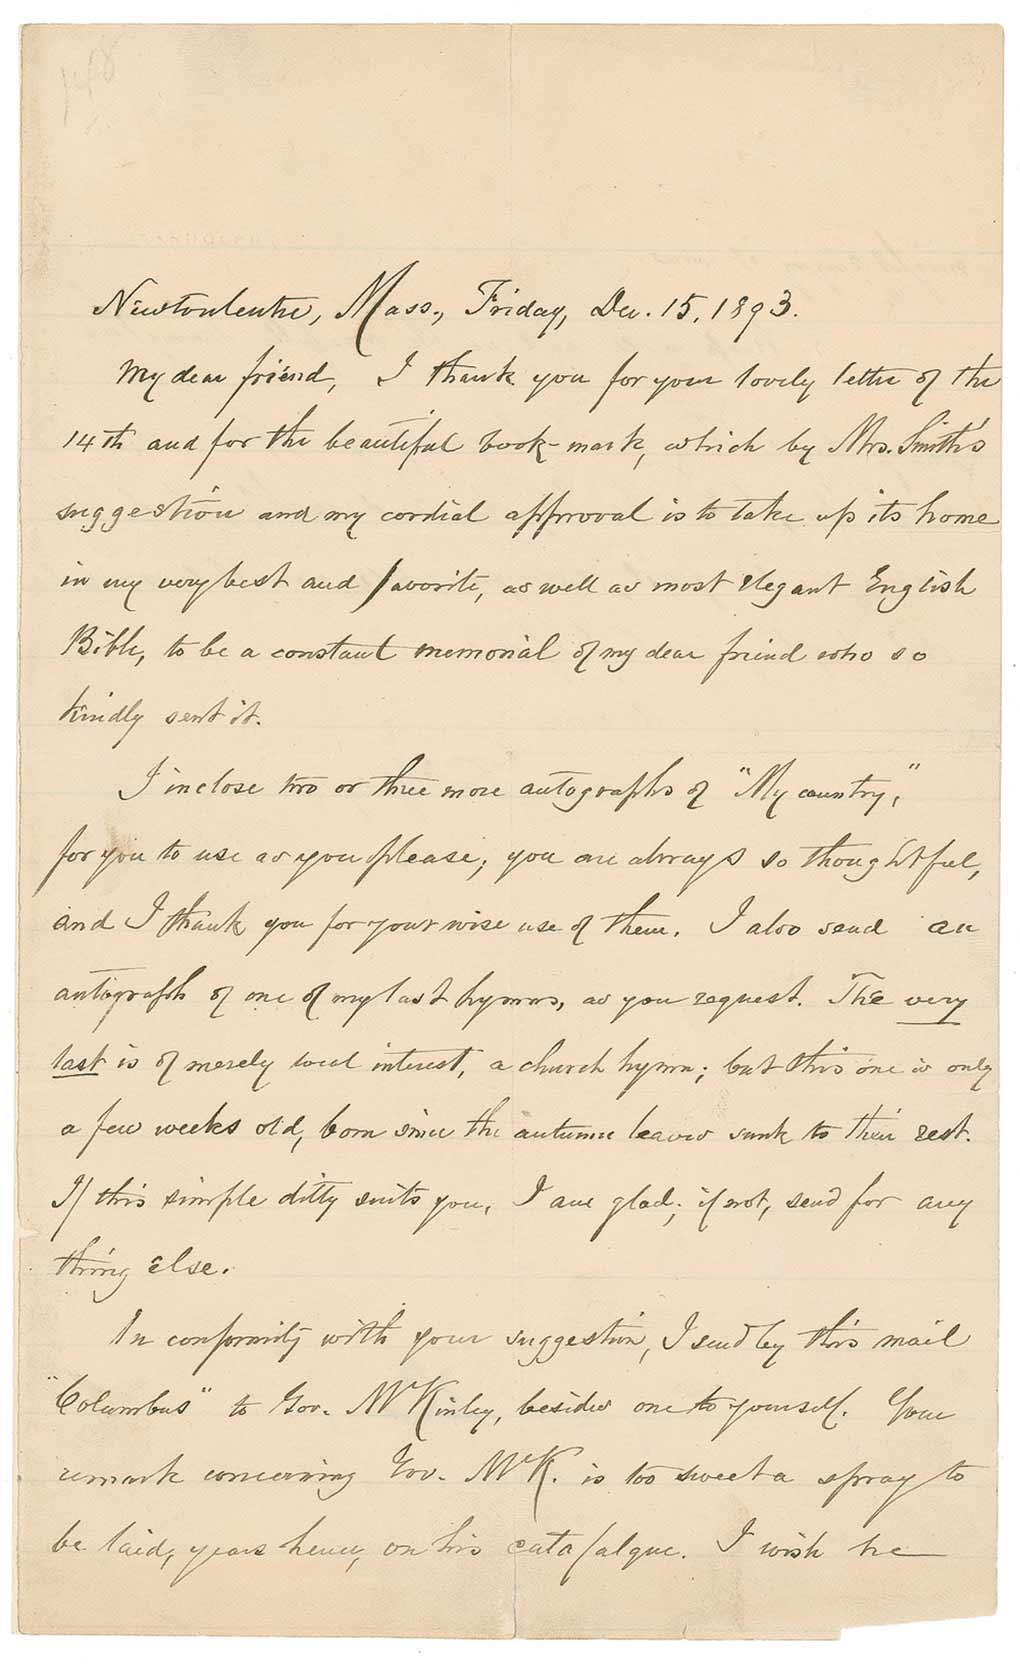 Newton Centre, Mass., Friday, Dec. 15, 1893.
My dear friend, I thank you for your lovely letter of the
14th and for the beautiful book-mark, which by Mrs. Smith's
suggestion and my cordial approval is to take up its home
in my very best and favorite, as well as most elegant English
Bible, to be a constant memorial of my dear friend who so
kindly sent it.
I inclose two or three more autographs of "My country,"
for you to use as you please; you are always so thoughtful,
and I thank you for your wise use of them. I also send an
autograph of one of my last hymns, as you request. The very
last is of merely local interest, a church hymn; but this one is only
a few weeks old, born since the autumn leaves sunk to their rest.
If this simple ditty suits you, I am glad; if not, send for any
thing else.
In conformity with your suggestion, I send by this mail
"Columbus" to Gov. McKinley, besides one to yourself. Your
remark concerning Gov. McK. is too sweet a spray to
be laid, years hence, on his catafalque. I wish he